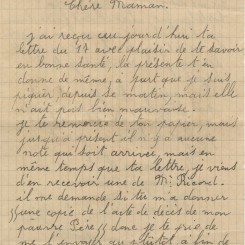 Chère Maman.
j'ai reçu aujourd'hui ta
lettre du 17 avec plaisir de te savoir
en bonne santé, la présente t'en
donne de même, à part que je suis
depuis se matin, mais elle
n'ait pas bien mauvaise.
je te remercie de ton papier, mais
jusqu'à présent il n'y a aucune
note qui soit arrivée, mais en
même temps que ta lettre, je viens
d'en recevoir une de Mr
il me demande si tu m'a donner
une copie de l'acte de décès de mon
pauvre Père donc je te prie de
me l'envoyer au plutôt a fin de